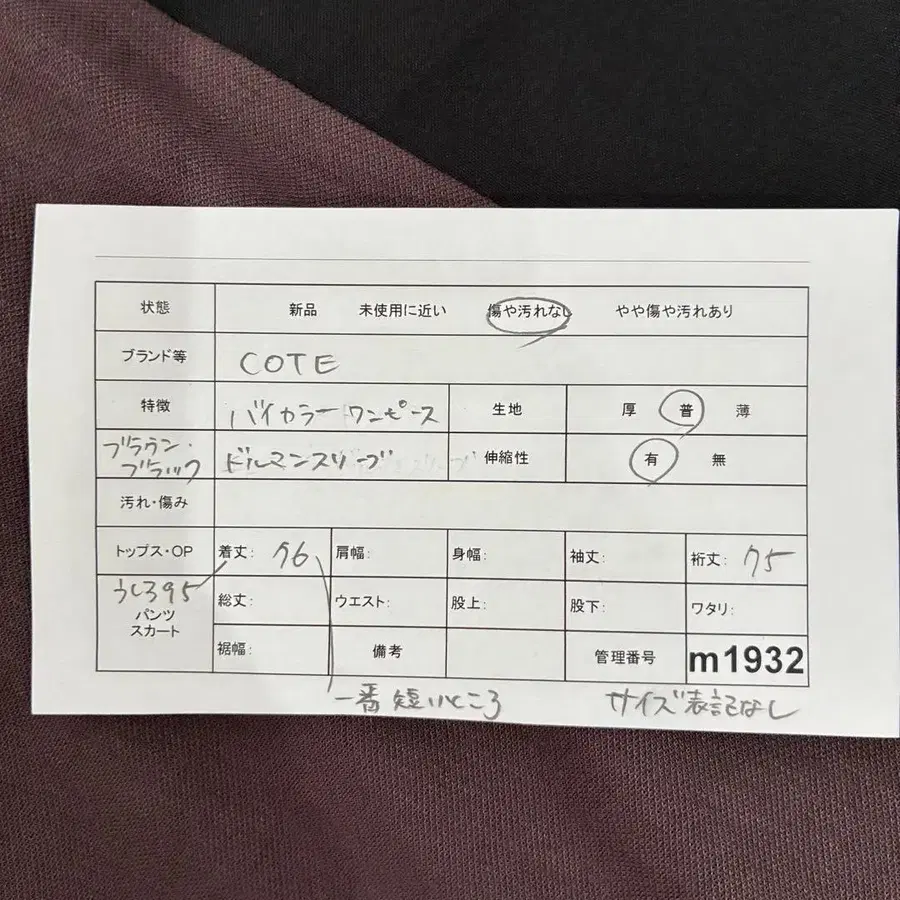 状態 新品 未使用に近い 傷や汚れなし やや傷や汚れあり
ブランド等 COTE
特徴 バイカラーワンピース 生地 厚 普 薄
ブラウン・
ブラック ドルマンスリーブ 伸縮性 有 無
汚れ・傷み
トップス・OP 着丈: 76 肩幅: 身幅: 袖丈: 裄丈: 75
うしろ95 総丈: ウエスト: 股上: 股下: ワタリ:
パンツ
スカート
裾幅: 備考 管理番号 m1932
一番短いところ サイズ表記なし